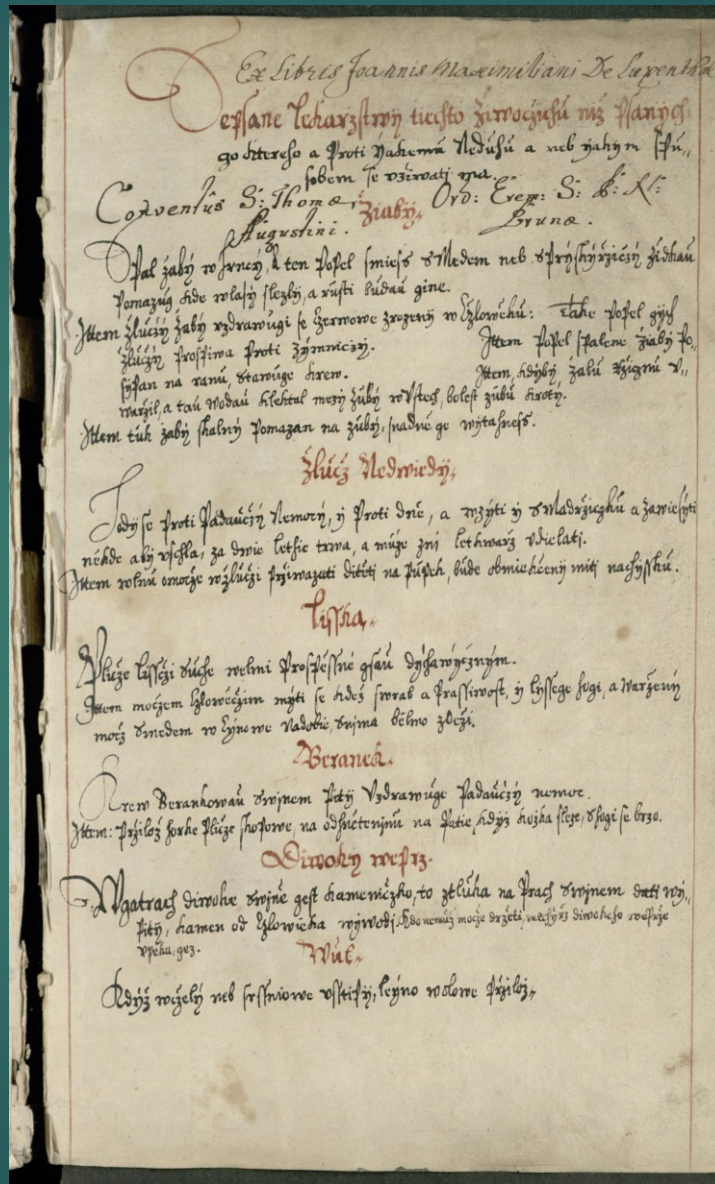 Ex Libris Joannis Maximiliani De Luxenthal
Sepsane lekarzstwy tiechto žiwocžichú niž psanych
go ktereho a Proti yakemu Neduhu a neb yakym spu„
sobem se vžiwati ma.
Conventûs S: Thomæ Ord: Erem: S: P:
Augustini. Brunæ.
Žiaby.
Spal žaby w hrncy, a ten Popel smiess s Medem neb s Pryskyržicży židkau
Pomazug kde wlasy slezly, a rusti budau gine.
Ittem žlucży žaby vzdrawugi se cżerwowe zrozeny w Cżloweku: Take Popel gých
žlucży Prospiwa Proti zýmniczy. Ittem Popel spalene žiaby Po„
sypan na ranu, stawuge krew. Ittem, kdyby, žabu Ržicznu v„
waržil, a tau wodau klektal mezy zuby w vstech, bolest zubu kroty.
Ittem tuk žaby skalny Pomazan na zuby, snadne ge wytahness.
Žlucż Nedwiedy.
Hody se Proti Padaucży Nemocy, y Proti dně, a wzýti y s Madržicżku a zawiesyti
někde aby vschla, za dwie lethie trwa, a může zni lethwarž vdielati.
Ittem wlnu omocże w žlucżi Prżiwazati ditěti na Pupek, bude obmiekcżeny miti na
Lisska.
Plicże lissczi suche welmi Prospěssné gsau dýchawycżným.
Ittem mocżem Cżlowecżim myti se kdež swrab a Prassiwost, y lyssege hogi, a warženy
mocż s medem w Cynowe nadobie, snima bělmo z Ocżi.
Beranek.
Krew Berankowau s winem Pitý Vzdrawuge Padaucży nemoc.
Ittem: Pržiložž horke Plicże skopowe, na odhnětenjnu na Patie, kdyż kožka sleze, shogi se brzo.
Diwoky weprz.
W gatrach diwoke swině gest kameniczko, to ztluka na Prach s winem wy„
Pitý, kamen od Cżlowieka wywodj. Kdo nemuž mocże držeti, mechyrž diwokeho weprže
vpeka, gez.
Wůl.
Když wcżely neb srssniowe vsstipý, leyno wolowe Pržilož„